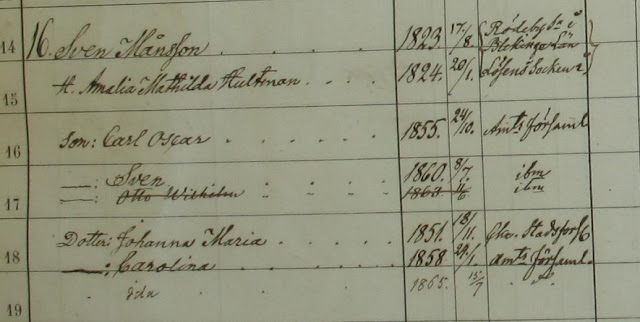 14 16. Sven Månsson 1823. 17/8. Rödeby Sn i
Blekinge Län
15 H. Amalia Mathilda Hultman 1824. 20/1. Lösens Socken i
16 Son: Carl Oscar 1855. 24/10. Amts Församl
—: Sven 1860. 8/7. ibm
17 —: Otto Wilhelm 1863 ibm
Dotter: Johanna Maria 1851. 18/11. Stadsförs
18 —: Carolina 1858 29/1. Amts Församl.
19 Ida 1865. 15/7 " "